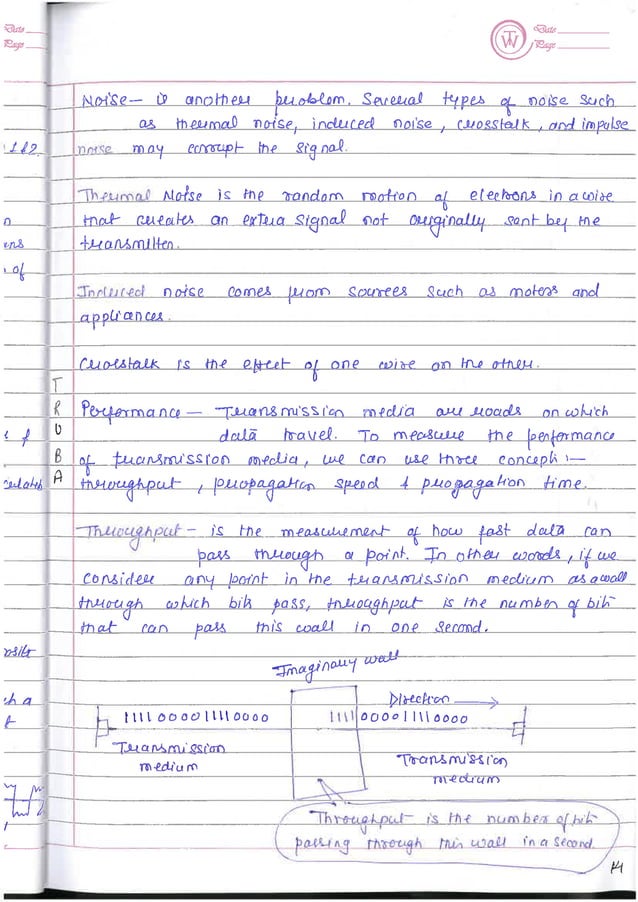 Date
Page
TW
Date
Page
Noise – is another problem. Several types of noise such
as thermal noise, induced noise, crosstalk, and impulse
noise may corrupt the signal.
Thermal Noise is the random motion of electrons in a wire
that creates an extra signal not originally sent by the
transmitter.
Induced noise comes from sources such as motors and
appliances.
Crosstalk is the effect of one wire on the other.
TRUBA
Performance – Transmission media are roads on which
data travel. To measure the performance
of transmission media, we can use three concept :–
throughput, propagation speed & propagation time.
Throughput – is the measurement of how fast data can
pass through a point. In other words, if we
consider any point in the transmission medium as a wall
through which bits pass, throughput is the number of bit
that can pass this wall in one second.
Imaginary wall
Direction
1111000011110000
1111000011110000
Transmission
medium
Transmission
medium
Throughput is the number of bit
passing through this wall in a second.
14